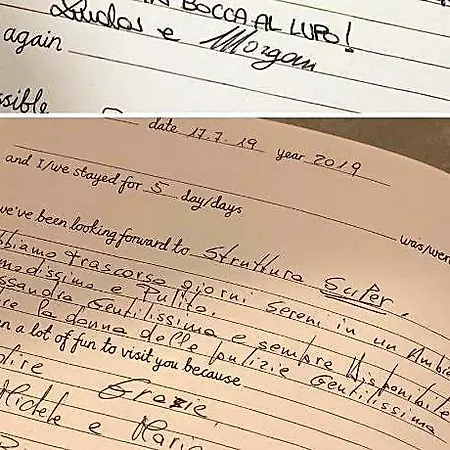 BOCCA AL LUPO!
e Morgan
again
ssible
date 17.7.19 year 2019
and I/we stayed for 5 day/days
was/were
we've been looking forward to Struttura SuPer,
bbiamo trascorso giorni Sereni in un Ambie
modissimo e Pulito.
ssandra Gentilissima e sempre Disponibile
re la donna delle pulizie Gentilissima
n a lot of fun to visit you because
Grazie
Michele e Maria